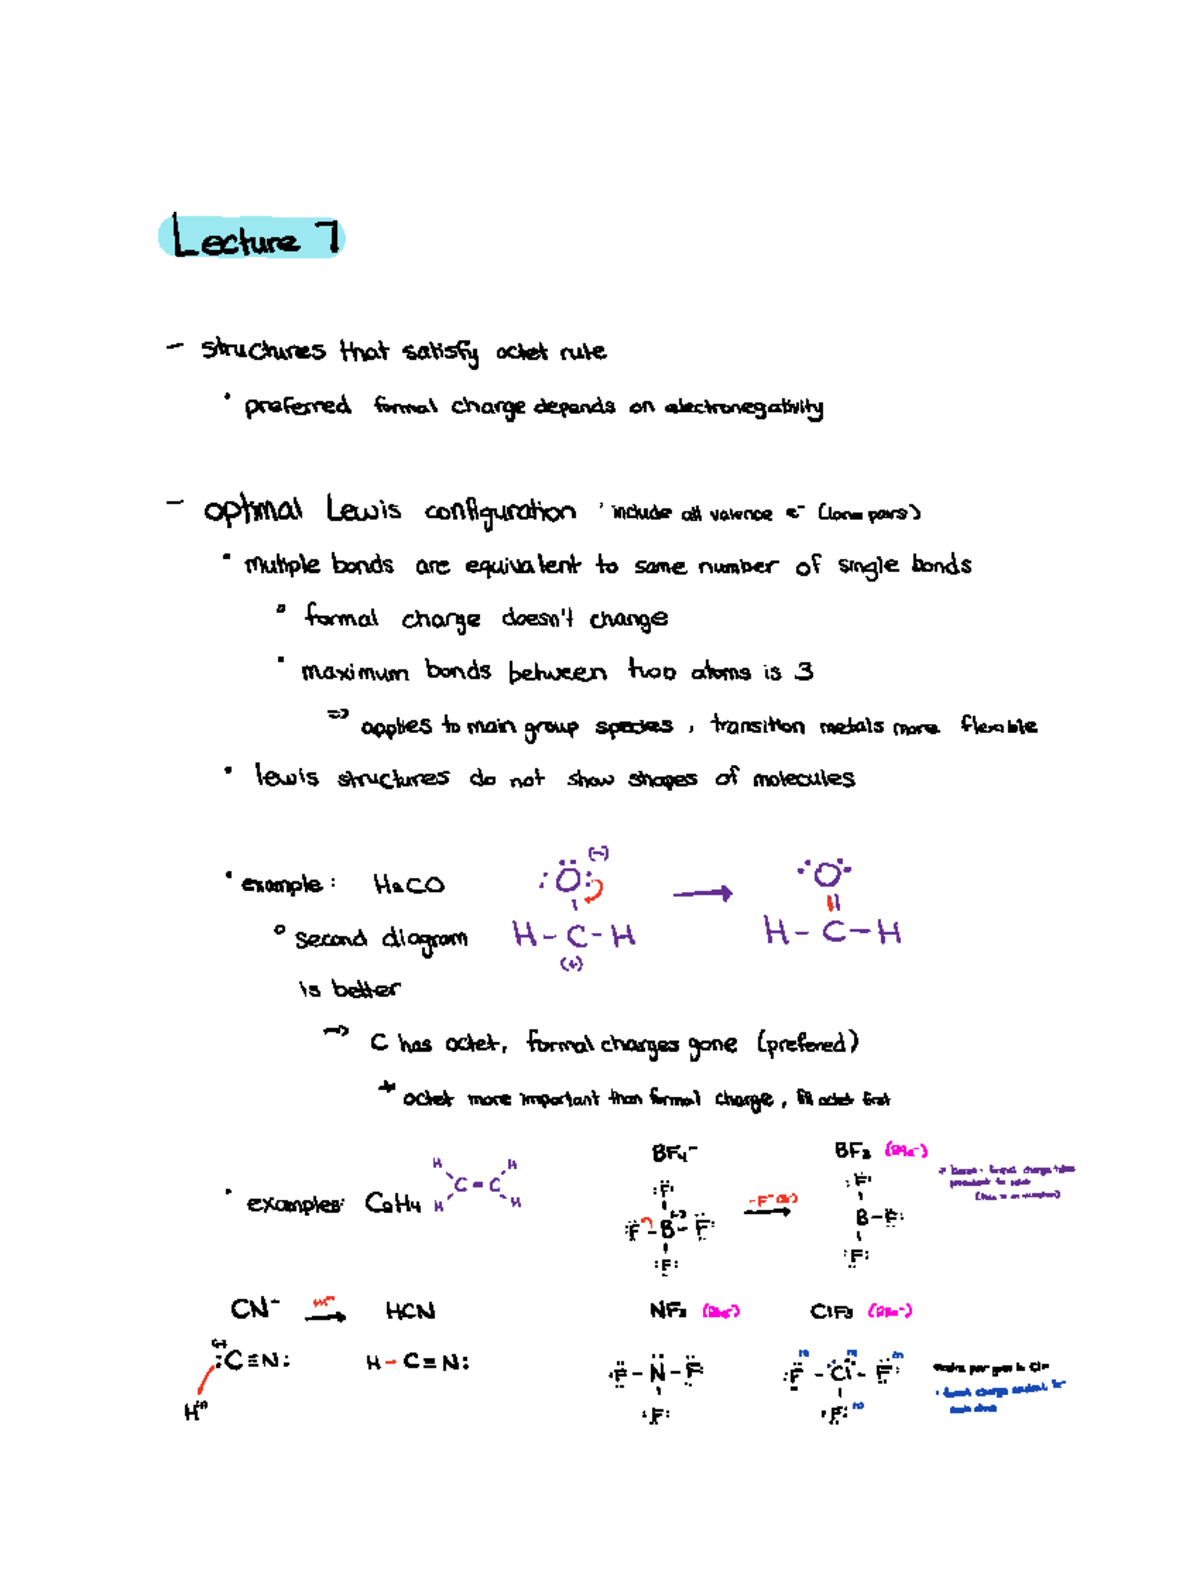 Lecture 7
- structures that satisfy octet rule
• preferred formal charge depends on electronegativity
- optimal Lewis configuration • include all valence e⁻ (lone pairs)
• multiple bonds are equivalent to same number of single bonds
• formal charge doesn't change
• maximum bonds between two atoms is 3
=> applies to main group species, transition metals more flexible
• lewis structures do not show shapes of molecules
• example: H₂CO
• second diagram
is better
=> C has octet, formal charges gone (prefered)
* octet more important than formal charge, fill octet first
(-)
:O:
H-C-H
(+)
→
:O:
H-C-H
• examples: C₂H₄
H H
C=C
H H
BF₄⁻
F
F-B-F
F
BF₃
F
B-F
F
CN⁻ → HCN
(-)
:C≡N:
H
H-C≡N:
NF₃
F-N-F
F
ClF₃
F-Cl-F
F